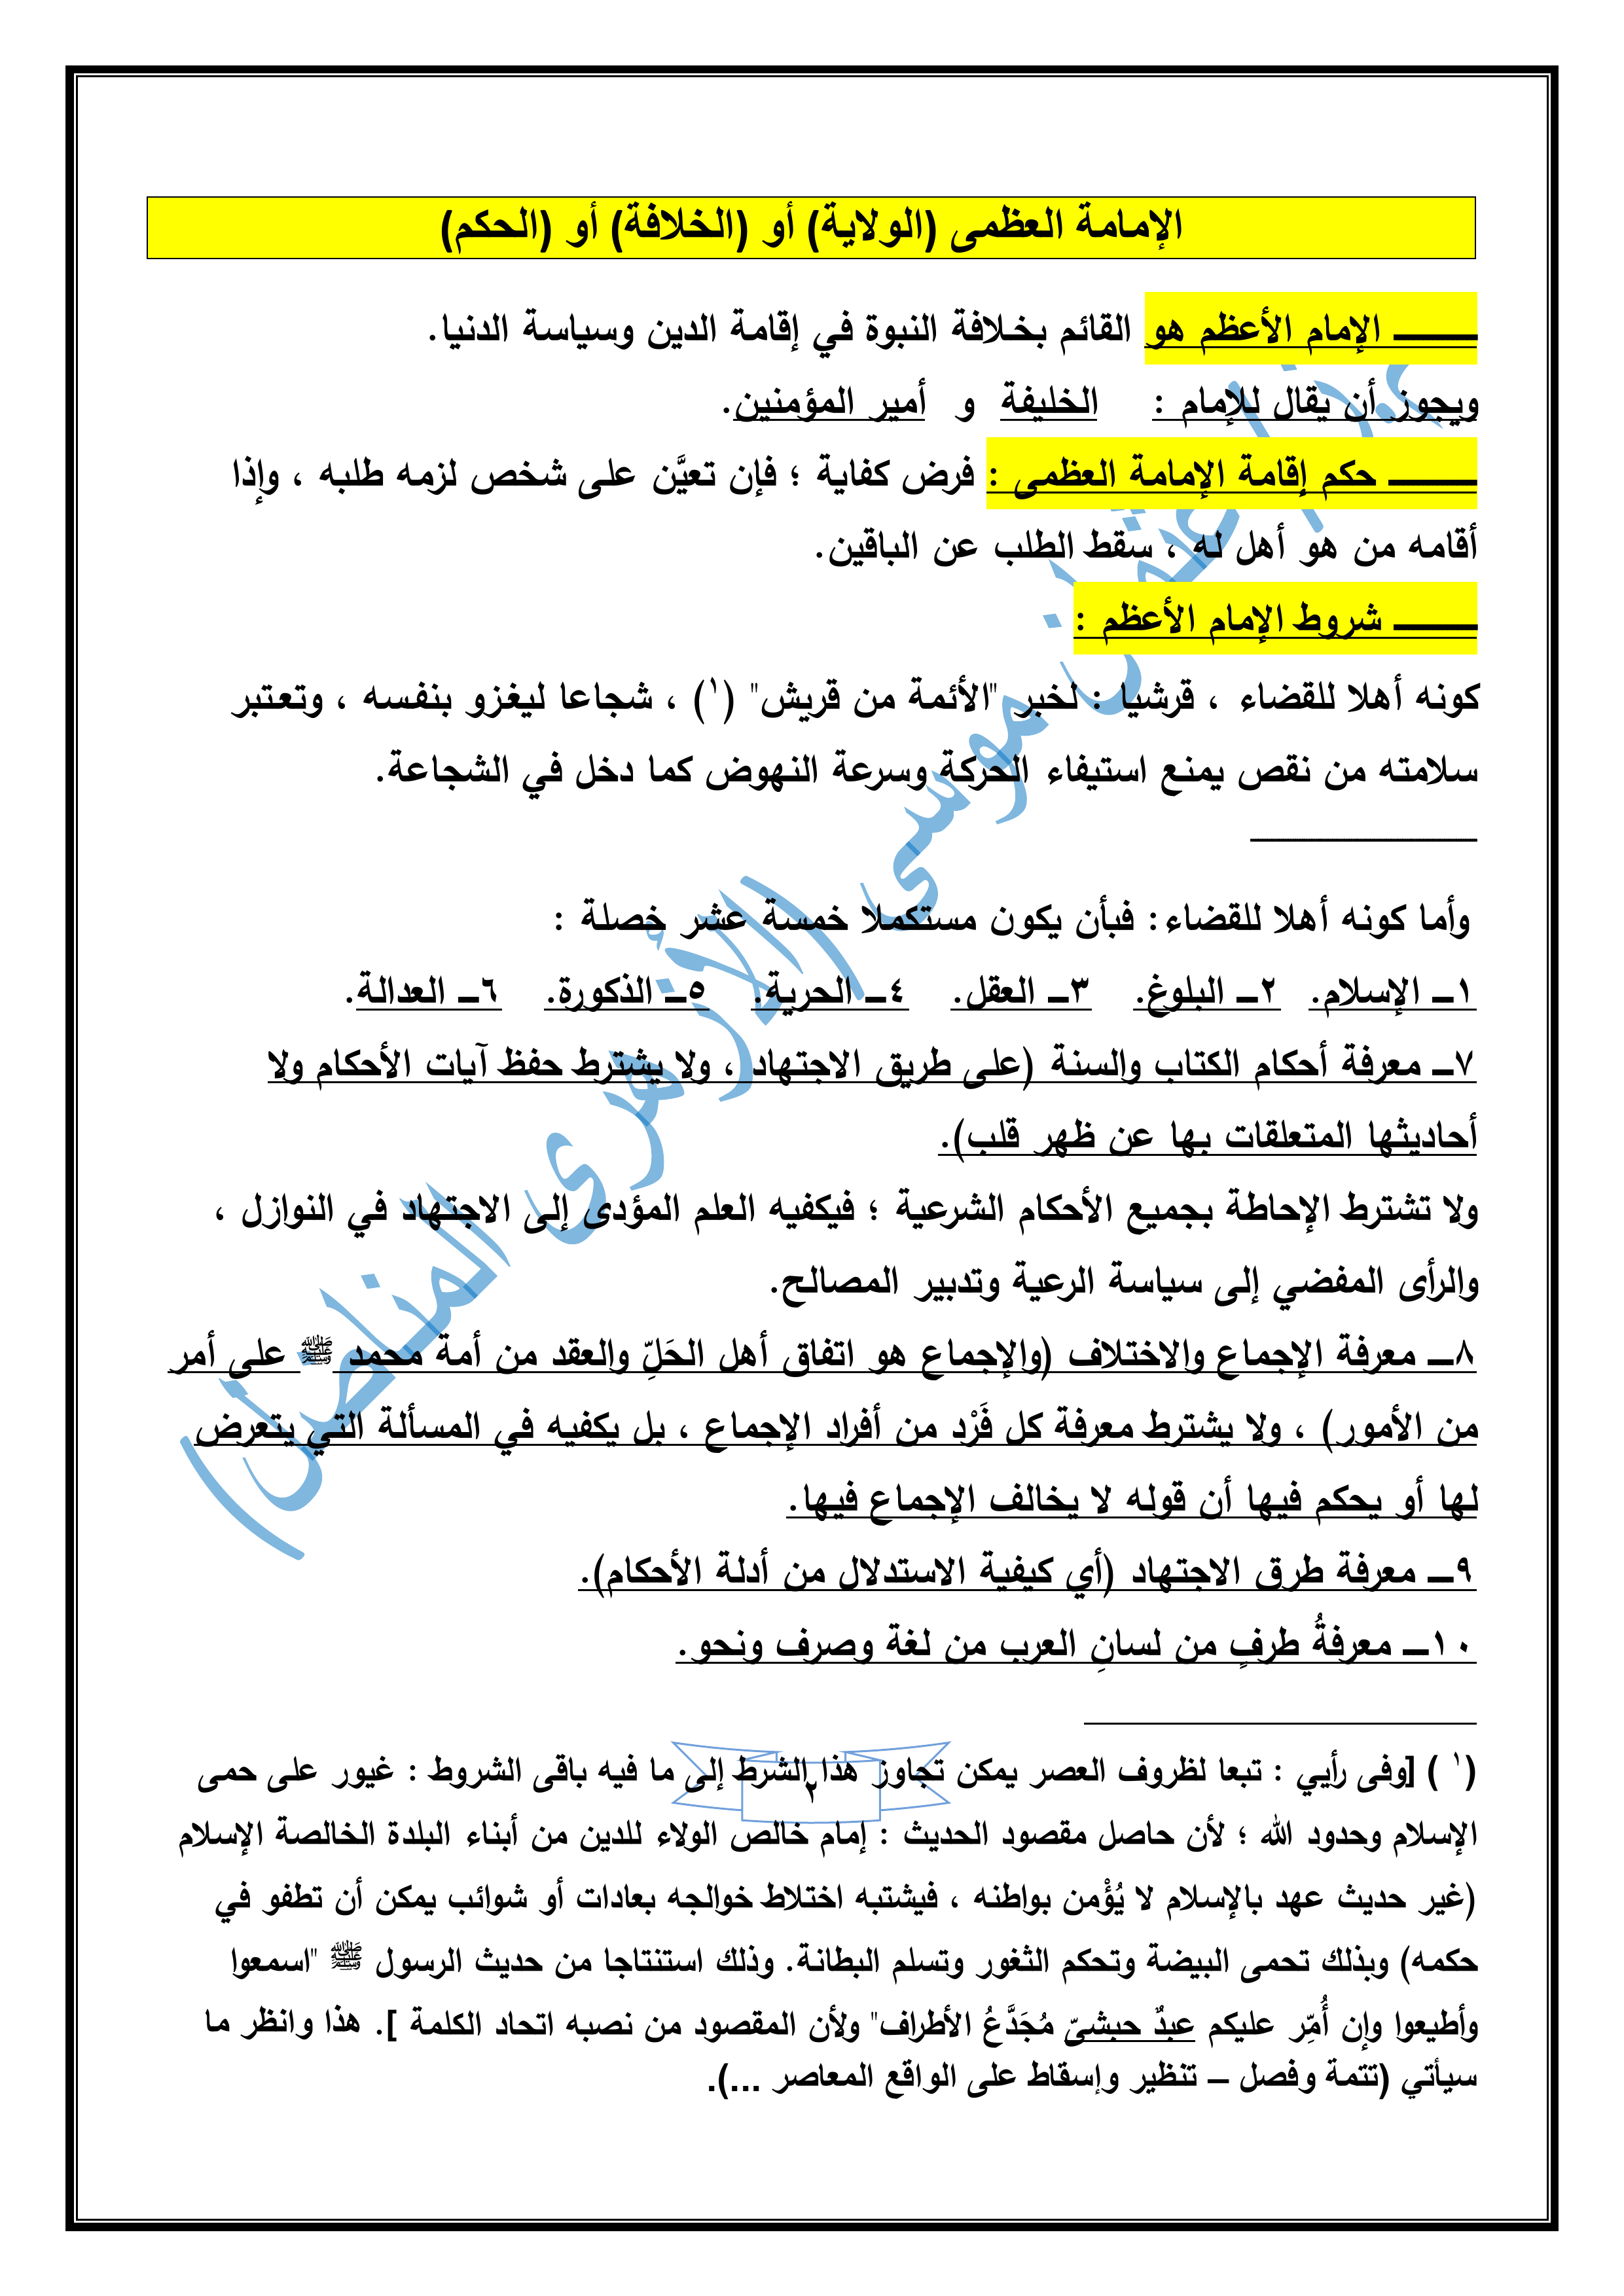 الإمامة العظمى (الولاية) أو (الخلافة) أو (الحكم)
ــــــ الإمام الأعظم هو القائم بخلافة النبوة في إقامة الدين وسياسة الدنيا.
ويجوز أن يقال للإمام : الخليفة و أمير المؤمنين.
ــــــ حكم إقامة الإمامة العظمى : فرض كفاية ؛ فإن تعيَّن على شخص لزمه طلبه ، وإذا
أقامه من هو أهل له ، سقط الطلب عن الباقين.
ــــــ شروط الإمام الأعظم :
كونه أهلا للقضاء ، قرشيا : لخبر "الأئمة من قريش" (١) ، شجاعا ليغزو بنفسه ، وتعتبر
سلامته من نقص يمنع استيفاء الحركة وسرعة النهوض كما دخل في الشجاعة.
ــــــــــــــــ
وأما كونه أهلا للقضاء: فبأن يكون مستكملا خمسة عشر خصلة :
١ــ الإسلام. ٢ــ البلوغ. ٣ــ العقل. ٤ــ الحرية. ٥ــ الذكورة. ٦ــ العدالة.
٧ــ معرفة أحكام الكتاب والسنة (على طريق الاجتهاد ، ولا يشترط حفظ آيات الأحكام ولا
أحاديثها المتعلقات بها عن ظهر قلب).
ولا تشترط الإحاطة بجميع الأحكام الشرعية ؛ فيكفيه العلم المؤدى إلى الاجتهاد في النوازل ،
والرأى المفضي إلى سياسة الرعية وتدبير المصالح.
٨ــ معرفة الإجماع والاختلاف (والإجماع هو اتفاق أهل الحَلِّ والعقد من أمة محمد ﷺ على أمر
من الأمور) ، ولا يشترط معرفة كل فَرْد من أفراد الإجماع ، بل يكفيه في المسألة التي يتعرض
لها أو يحكم فيها أن قوله لا يخالف الإجماع فيها.
٩ــ معرفة طرق الاجتهاد (أي كيفية الاستدلال من أدلة الأحكام).
١٠ــ معرفةُ طرفٍ من لسانِ العرب من لغة وصرف ونحو.
(١ ) [وفى رأيي : تبعا لظروف العصر يمكن تجاوز هذا الشرط إلى ما فيه باقى الشروط : غيور على حمى
٢
الإسلام وحدود الله ؛ لأن حاصل مقصود الحديث : إمام خالص الولاء للدين من أبناء البلدة الخالصة الإسلام
(غير حديث عهد بالإسلام لا يُؤْمن بواطنه ، فيشتبه اختلاط خوالجه بعادات أو شوائب يمكن أن تطفو في
حكمه) وبذلك تحمى البيضة وتحكم الثغور وتسلم البطانة. وذلك استنتاجا من حديث الرسول ﷺ "اسمعوا
وأطيعوا وإن أُمِّر عليكم عبدٌ حبشىّ مُجَدَّعُ الأطراف" ولأن المقصود من نصبه اتحاد الكلمة ]. هذا وانظر ما
سيأتي (تتمة وفصل – تنظير وإسقاط على الواقع المعاصر ...).
موسى (الأزهرى المناصل)